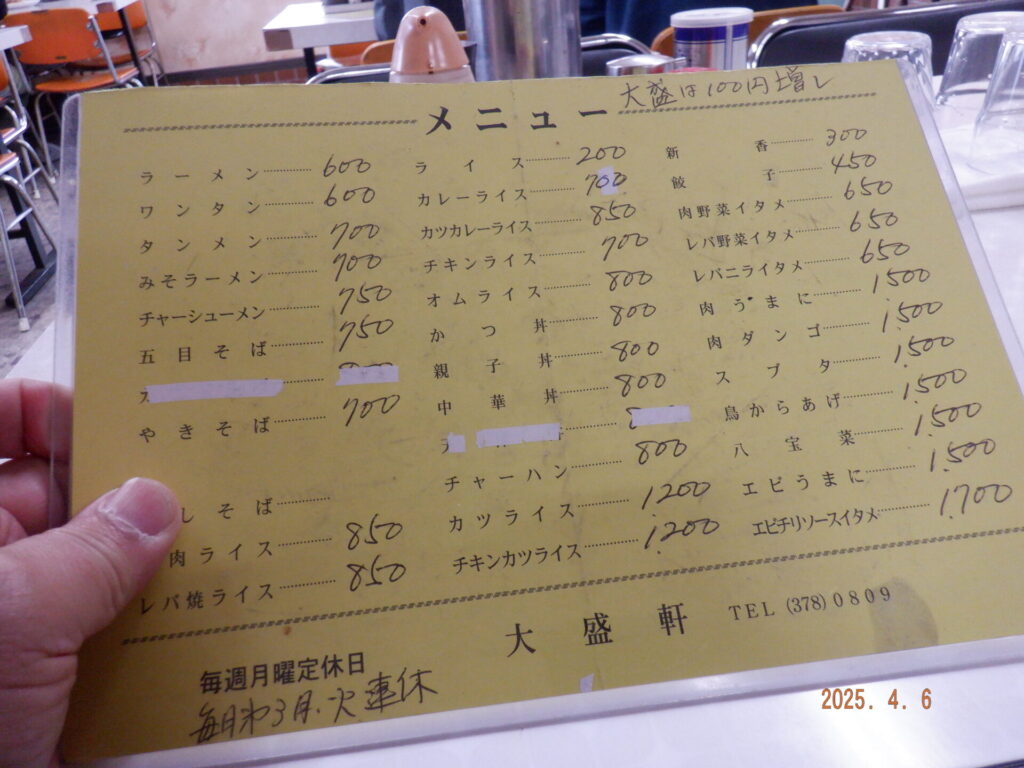 大盛は100円増し
メニュー
ラーメン 600
ワンタン 600
タンメン 700
みそラーメン 700
チャーシューメン 750
五目そば 750
やきそば 700
しそば
肉ライス 850
レバ焼ライス 850
ライス 200
カレーライス 700
カツカレーライス 850
チキンライス 700
オムライス 800
かつ丼 800
親子丼 800
中華丼 800
チャーハン 800
カツライス 1.200
チキンカツライス 1.200
新香 300
餃子 450
肉野菜イタメ 650
レバ野菜イタメ 650
レバニライタメ 650
肉うまに 1.500
肉ダンゴ 1.500
スブタ 1.500
鳥からあげ 1.500
八宝菜 1.500
エビうまに 1.500
エビチリソースイタメ 1.700
大盛軒 TEL (378) 0809
毎週月曜定休日
毎月第3月、火連休
2025. 4. 6